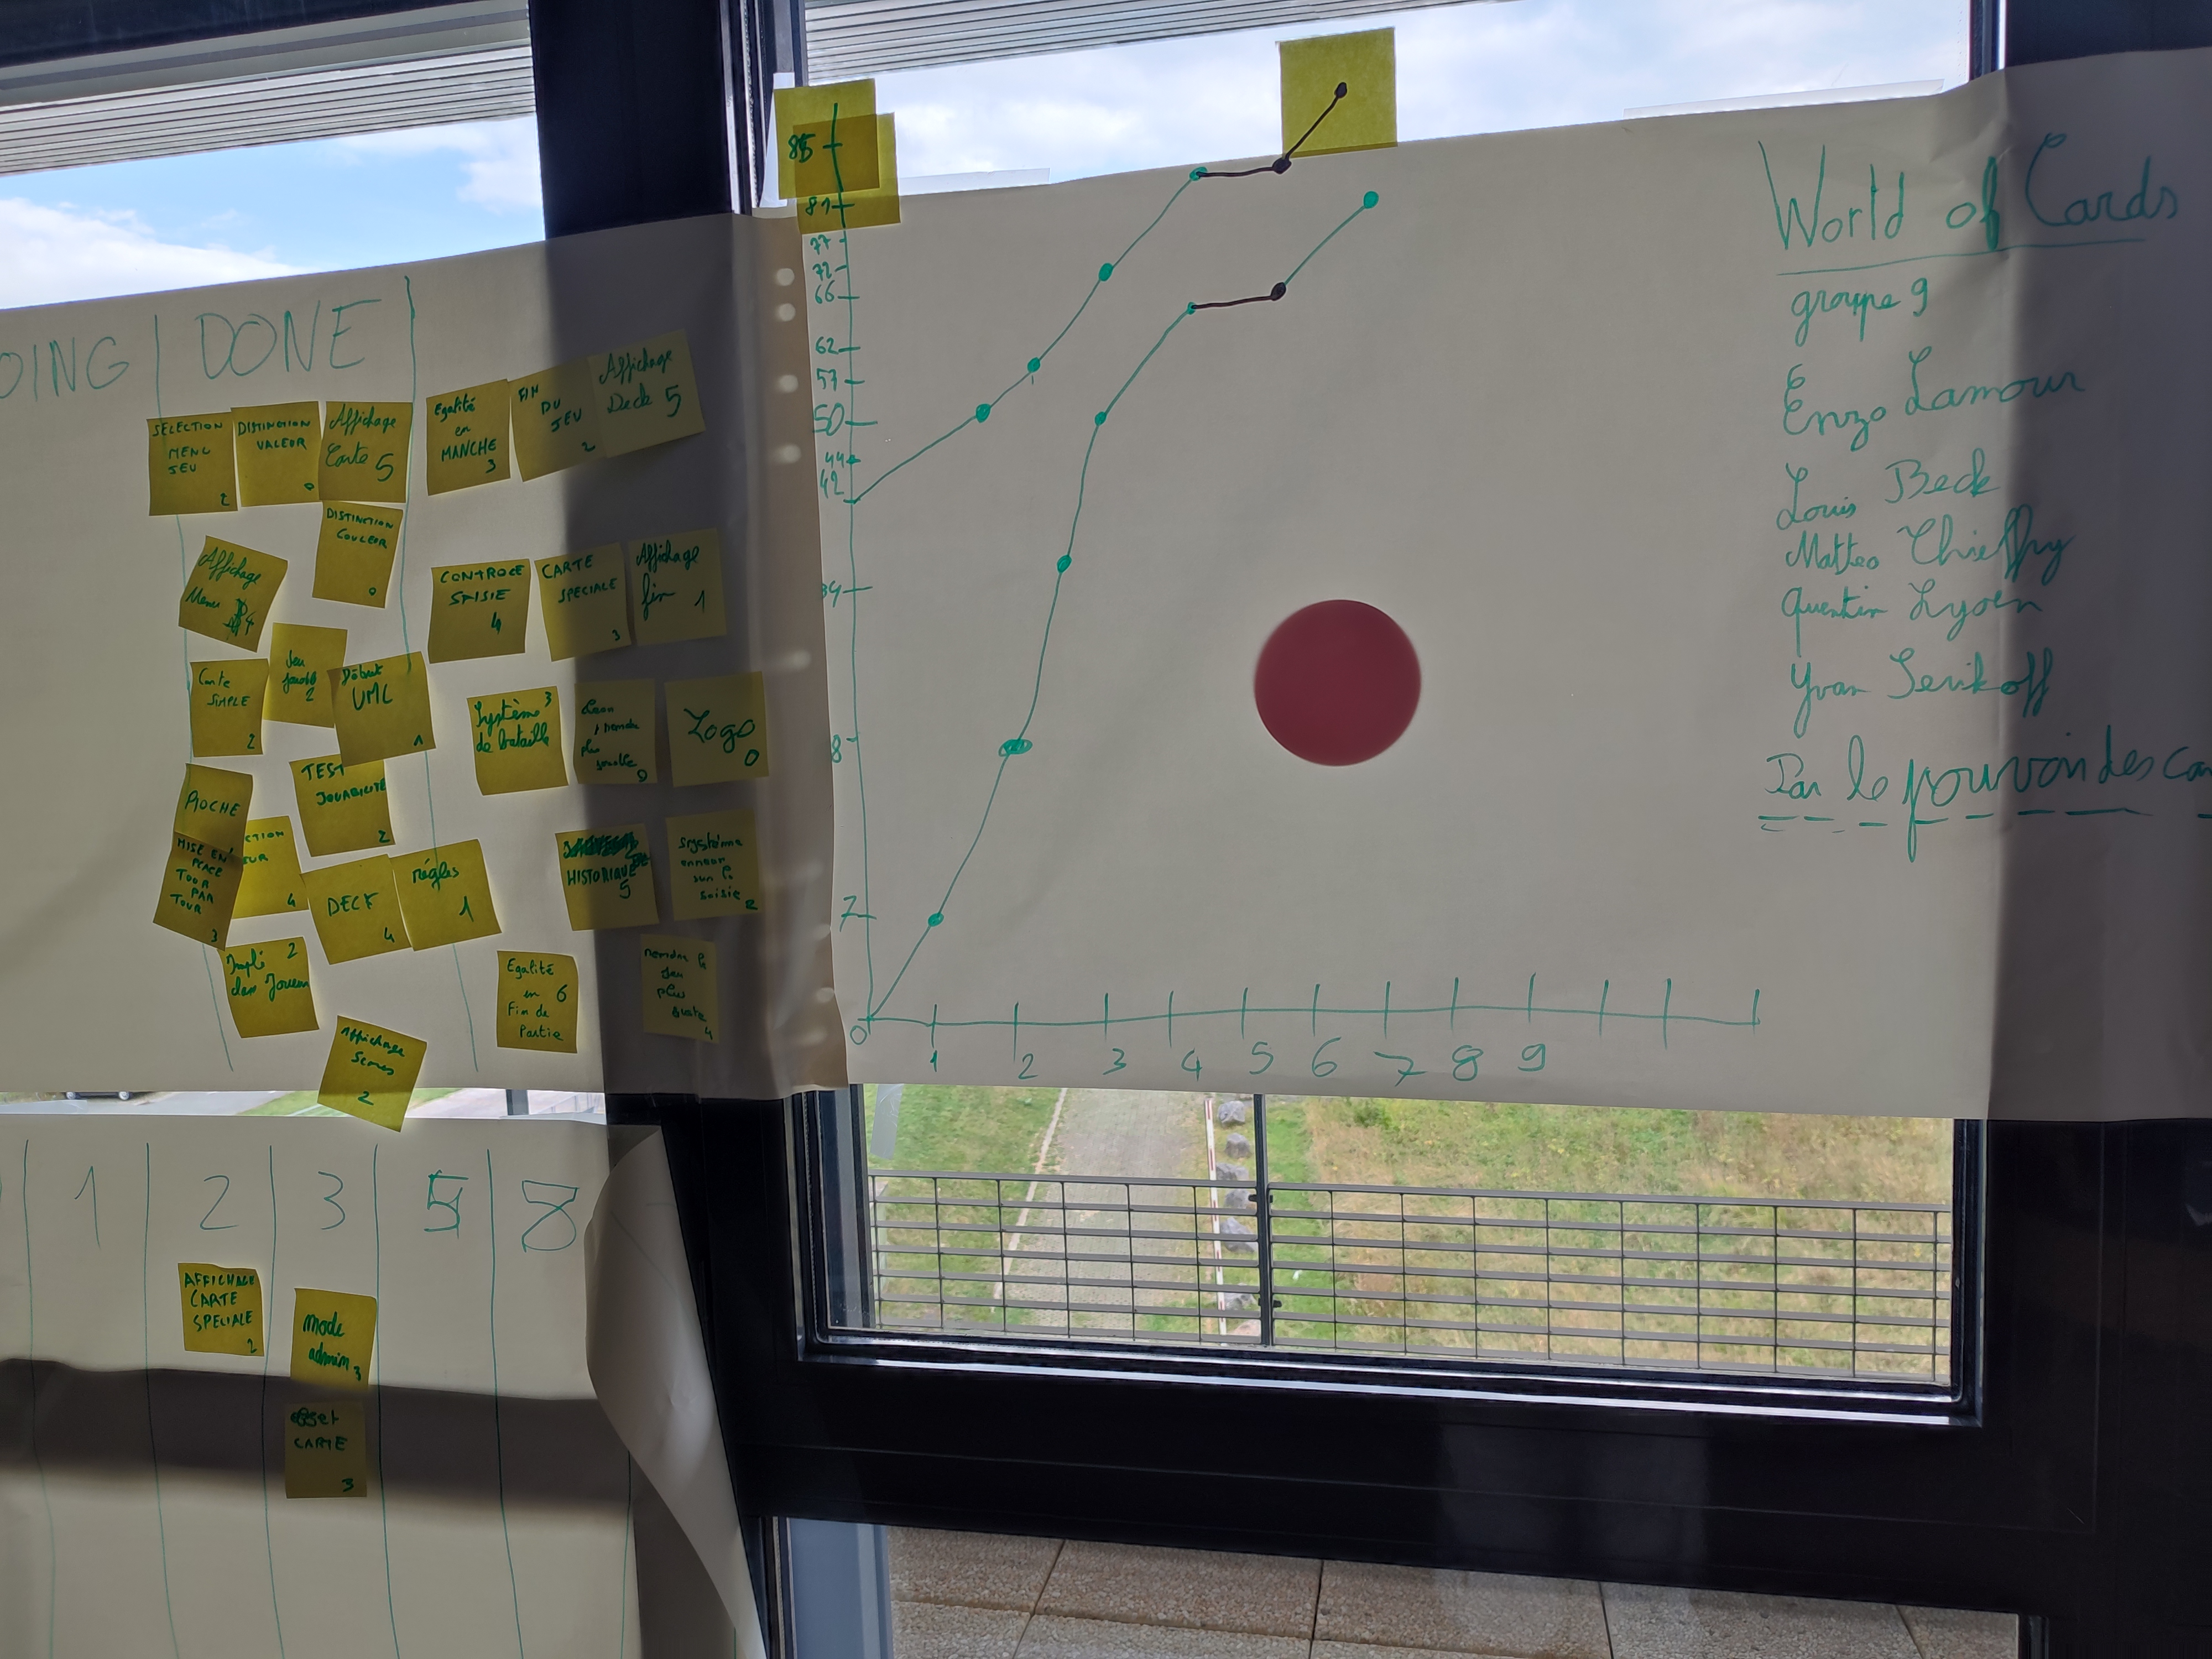 OING
DONE
SELECTION
MENU
JEU
2
DISTINCTION
VALEUR
0
Affichage
Carte 5
Egalité
en
MANCHE
3
FIN
DU
JEU
2
Affichage
Deck 5
DISTINCTION
COULEUR
0
Affichage
Menu
4
CONTROLE
SAISIE
4
CARTE
SPECIALE
3
Affichage
fin
1
Carte
SIMPLE
2
Jeu
2
Début
UML
1
Système 3
de bataille
0
Logo
0
PIOCHE
TEST
JOUABILITÉ
2
MISE EN
PLACE
TOUR
PAR
TOUR
3
CTION
EUR
4
DECK
4
règles
1
HISTORIQUE
5
Système
erreur
sur la
saisie
2
Impl 2
dans Joueur
Egalité
en 6
Fin de
Partie
rendre le
jeu
plus
4
Affichage
Scores
2
1 2 3 5 8
AFFICHAGE
CARTE
SPECIALE
2
mode
admin 3
effet
CARTE
3
85
81
77
72
66
62
57
50
44
42
34
8
7
0
1 2 3 4 5 6 7 8 9
World of Cards
groupe 9
Enzo Lamour
Louis Beck
Matteo Chieffry
Quentin Lysen
Yvan Serikoff
Par le pouvoir des car